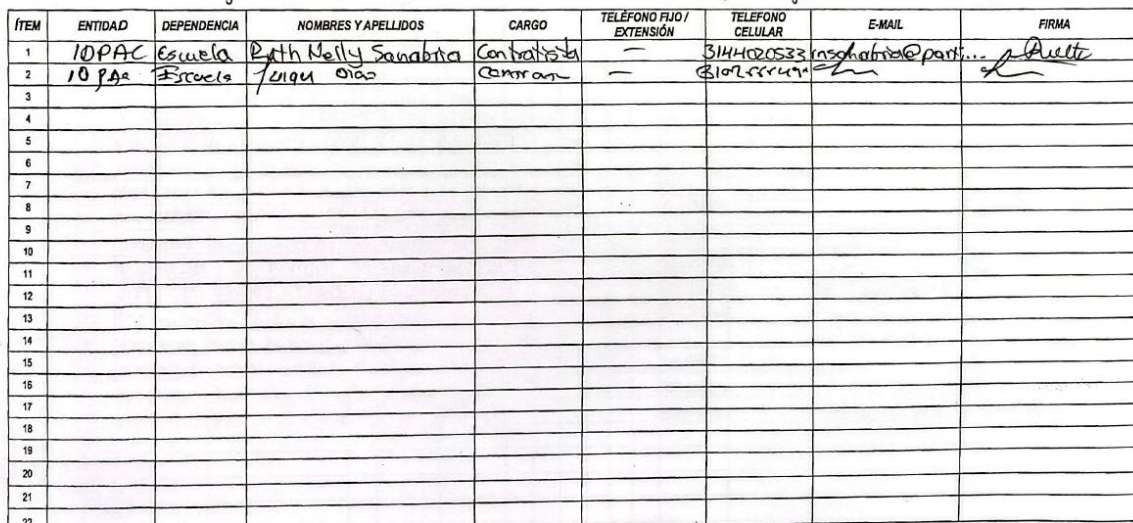 ÍTEM ENTIDAD DEPENDENCIA NOMBRES Y APELLIDOS CARGO TELÉFONO FIJO / EXTENSIÓN TELEFONO CELULAR E-MAIL FIRMA
1 IDPAC Escuela Ruth Nelly Sanabria Contratista — 3144020533 rnsanabria@parti...
2 IDPAC Escuela —
3
4
5
6
7
8
9
10
11
12
13
14
15
16
17
18
19
20
21
22